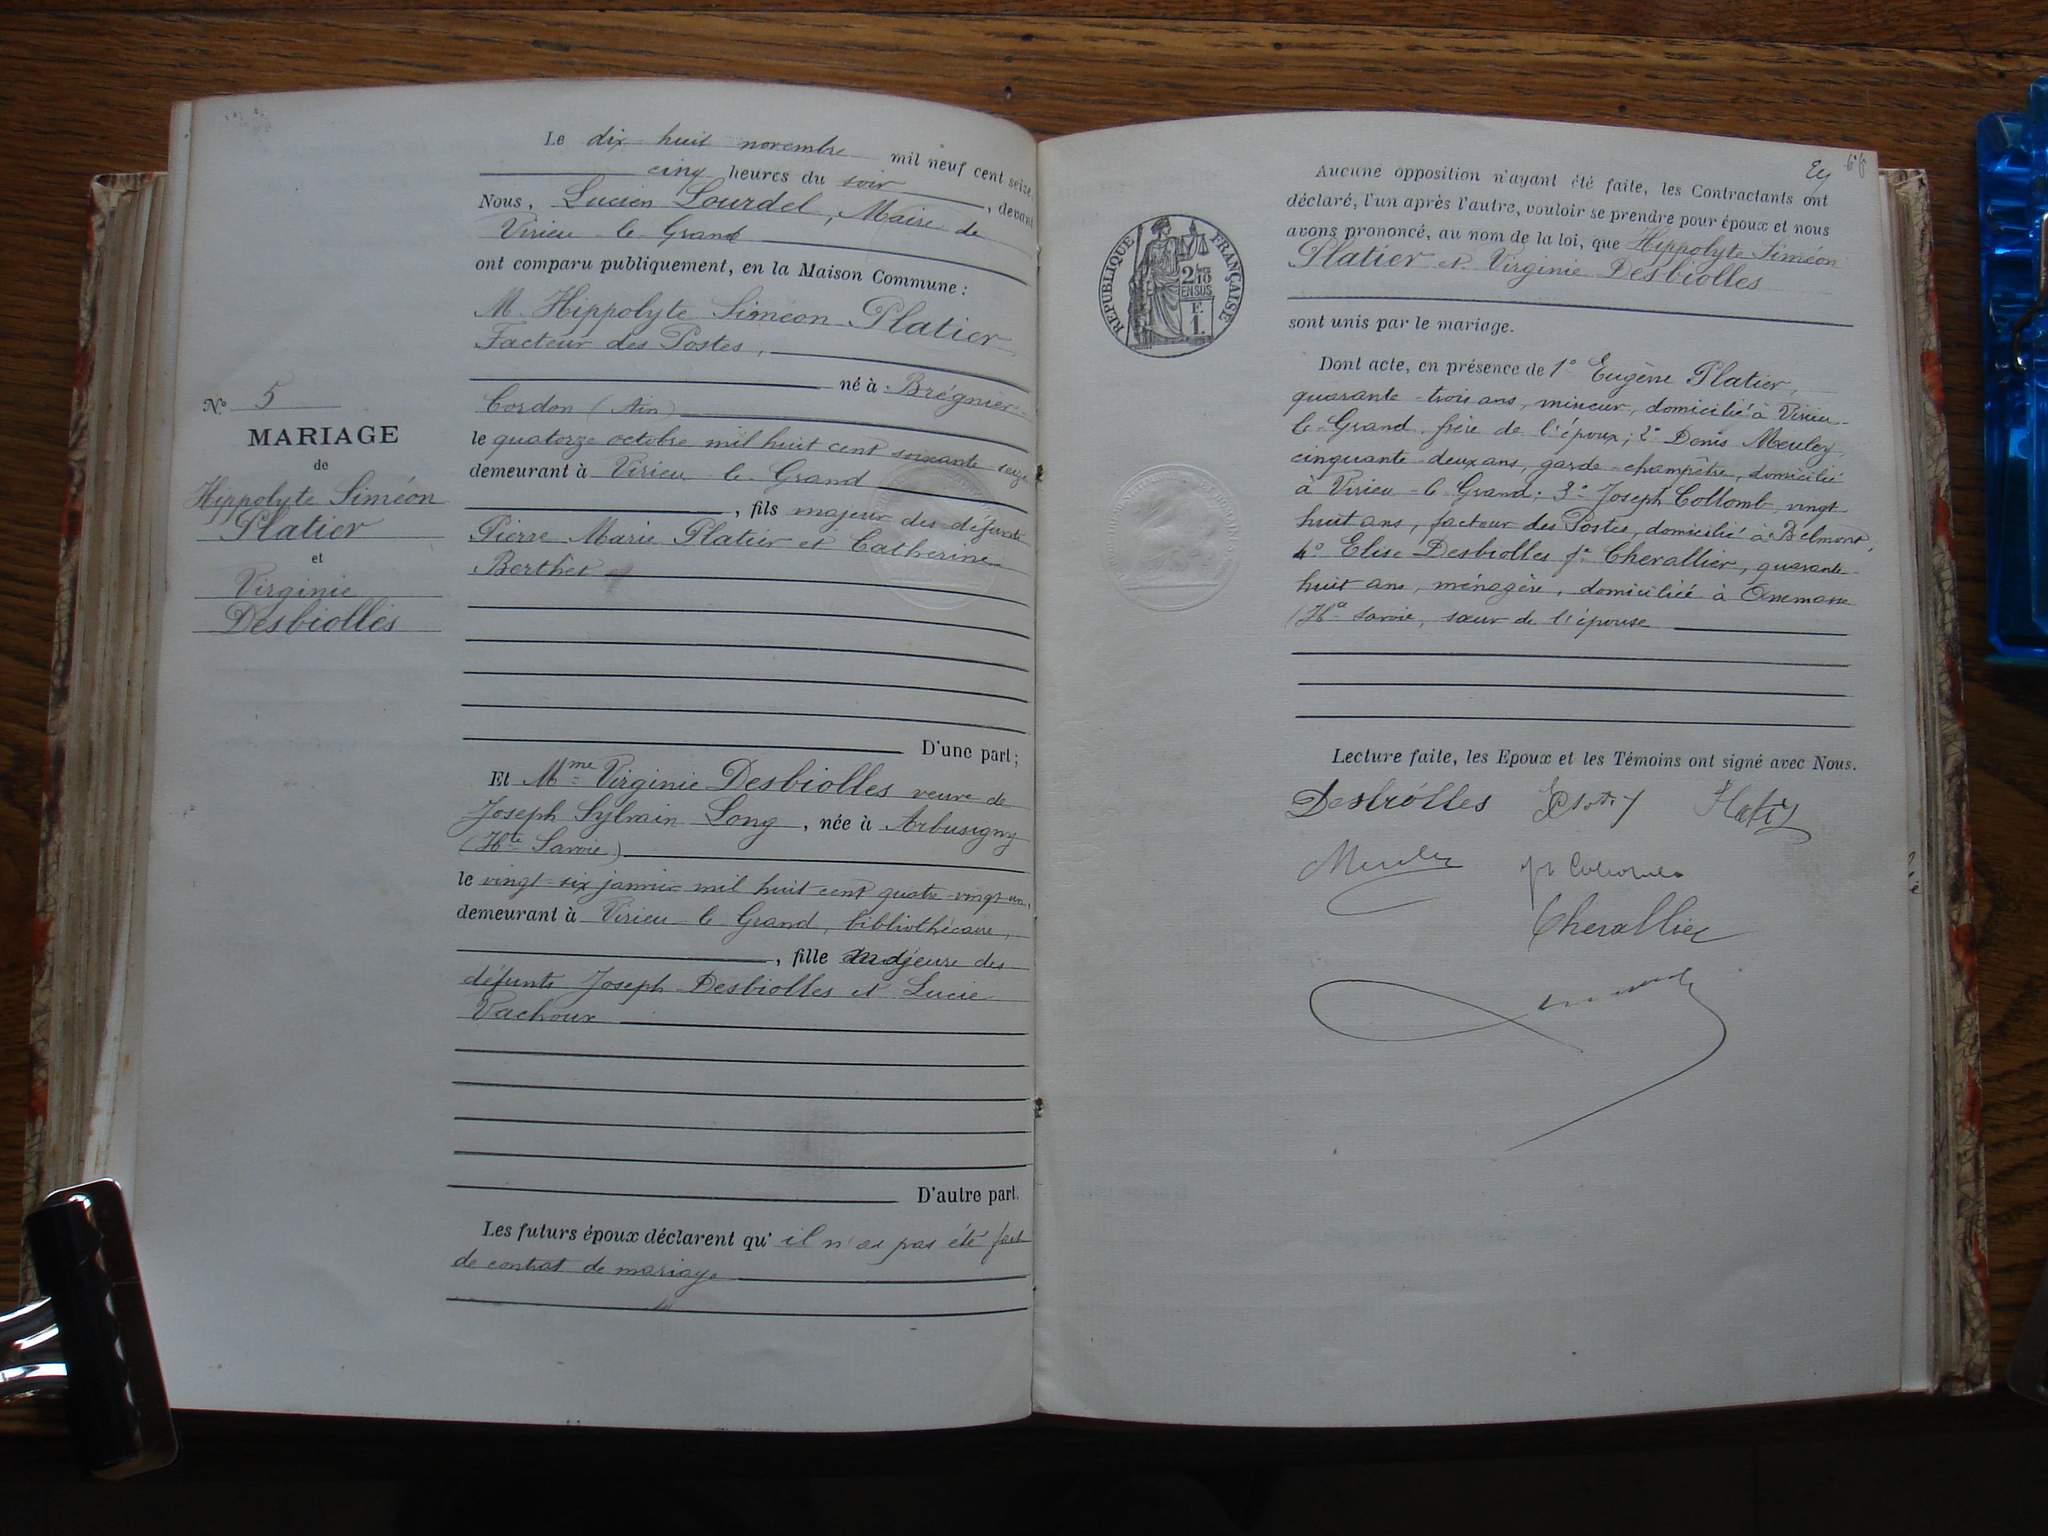 Le dix-huit novembre mil neuf cent seize,
cinq heures du soir, devant
Nous, Lucien Lourdel, Maire de
Virieu-le-Grand
ont comparu publiquement, en la Maison Commune :
M. Hippolyte Siméon Platier
Facteur des Postes,
né à Brégnier-
Cordon (Ain)
le quatorze octobre mil huit cent soixante-seize
demeurant à Virieu-le-Grand
, fils majeur des défunts
Pierre Marie Platier et Catherine
Berthet
D'une part ;
Et Mme Virginie Desbiolles veuve de
Joseph Sylvain Long, née à Arbusigny
(Hte Savoie)
le vingt-six janvier mil huit cent quatre-vingt-un,
demeurant à Virieu-le-Grand, bibliothécaire,
, fille majeure des
défunts Joseph Desbiolles et Lucie
Vachoux
D'autre part.
Les futurs époux déclarent qu' il n'a pas été fait
de contrat de mariage
N° 5
MARIAGE
de
Hippolyte Siméon
Platier
et
Virginie
Desbiolles
Aucune opposition n'ayant été faite, les Contractants ont
déclaré, l'un après l'autre, vouloir se prendre pour époux et nous
avons prononcé, au nom de la loi, que Hippolyte Siméon
Platier et Virginie Desbiolles
sont unis par le mariage.
Dont acte, en présence de 1° Eugène Platier,
quarante-trois ans, mineur, domicilié à Virieu-
le-Grand, frère de l'époux ; 2° Denis Meuley,
cinquante-deux ans, garde-champêtre, domicilié
à Virieu-le-Grand ; 3° Joseph Collomb, vingt-
huit ans, facteur des Postes, domicilié à Belmont,
4° Elise Desbiolles fe Chevallier, quarante-
huit ans, ménagère, domiciliée à Annemasse
(Hte Savoie, sœur de l'épouse
Lecture faite, les Epoux et les Témoins ont signé avec Nous.
Desbiolles Platier
Meuley
Chevallier
RÉPUBLIQUE FRANÇAISE
2/10
EN SUS
F.
1.